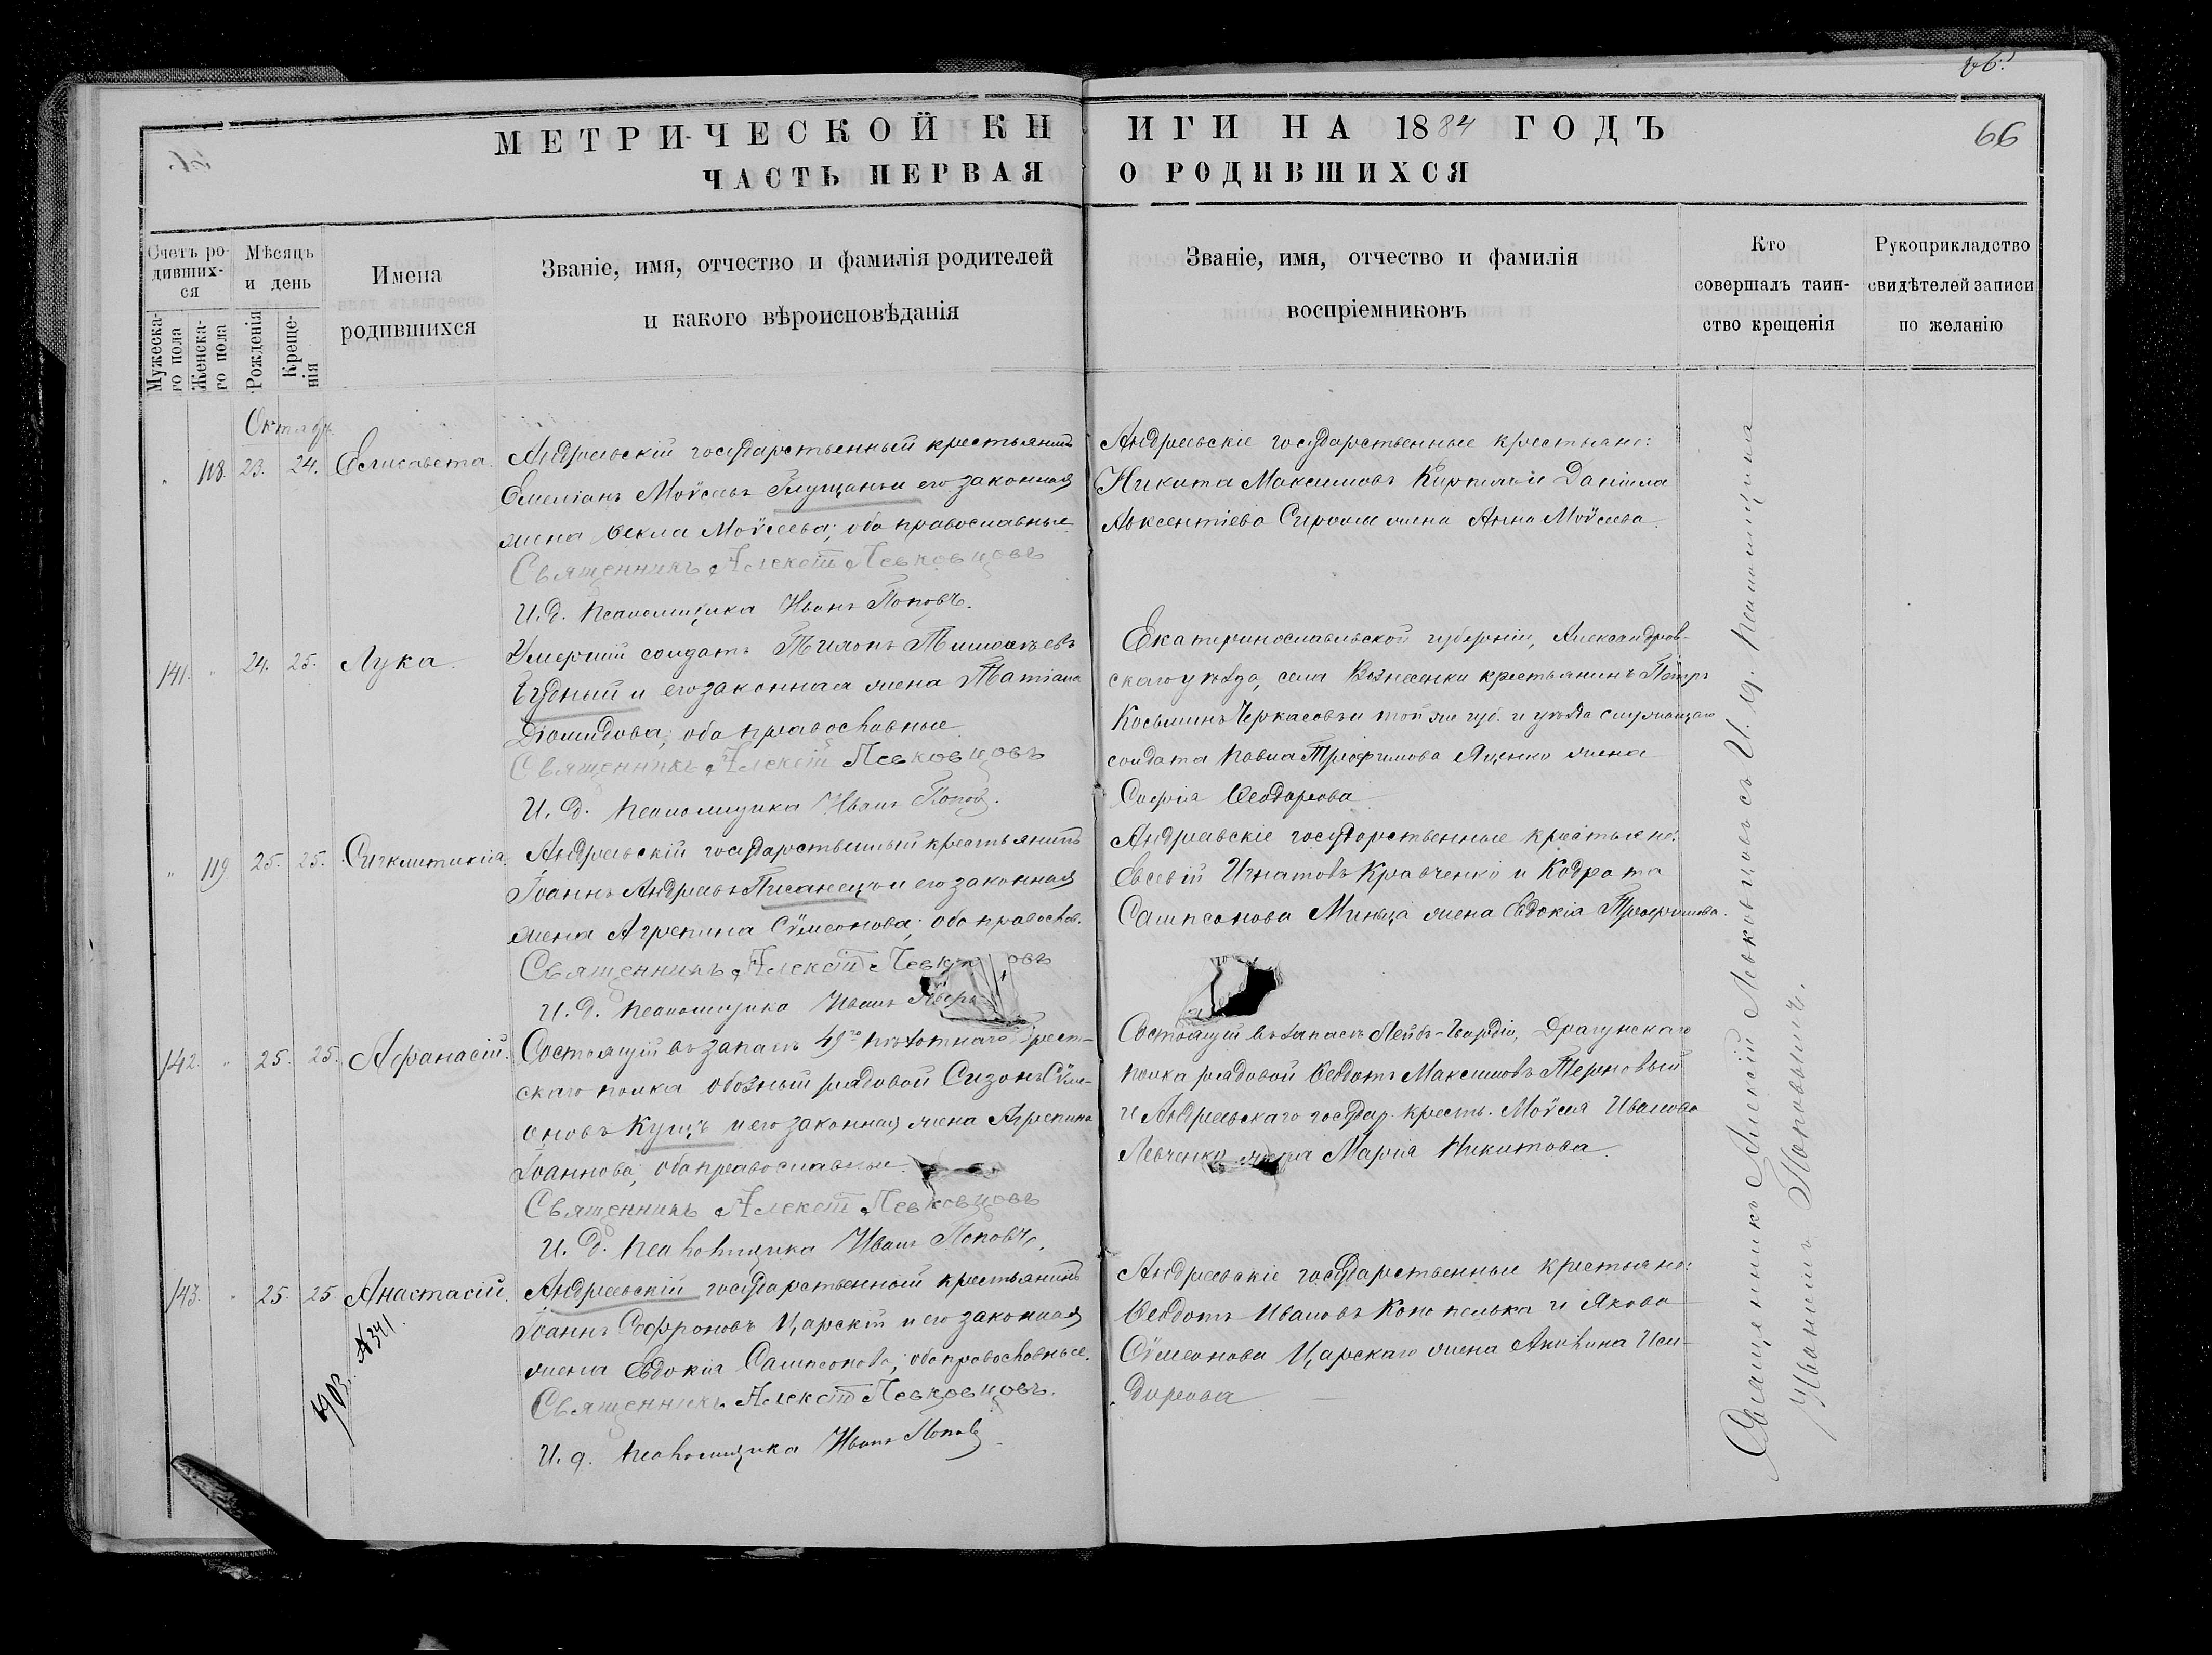 66
МЕТРИЧЕСКОЙ КНИГИ НА 1884 ГОДЪ
66
ЧАСТЬ ПЕРВАЯ О РОДИВШИХСЯ
Счетъ ро-
дивших-
ся
Мужеска-
го пола
Женска-
го пола
Мѣсяцъ
и день
Рожденія
Креще-
нія
Имена
родившихся
Званіе, имя, отчество и фамилія родителей
и какого вѣроисповѣданія
Званіе, имя, отчество и фамилія
воспріемниковъ
Кто
совершалъ таин-
ство крещенія
Рукоприкладство
свидѣтелей записи
по желанію
Октябр.
" 118. 23. 24. Елисавета.
Андреевскій государственный крестьянинъ
Емеліанъ Моѵсеевъ и его законная
жена Ѳекла Моѵсеева; оба православные
Священникъ Алексѣй Левковцовъ
И. д. псаломщика Иванъ Поповъ.
Андреевскіе государственные крестьяне:
Никита Максимовъ и Даніила
Авксентіева жена Анна Моѵсеева.
141. " 24. 25. Лука.
Умершій солдатъ Тихонъ
Чудный и его законная жена Татіана
Діомидова; оба православные
Священникъ Алексѣй Левковцовъ
И. д. псаломщика Иванъ Поповъ.
Екатеринославльской губерніи, Александров-
скаго уѣзда, села Вознесенки крестьянинъ Петръ
Косьминъ Черкасовъ и той же губ. и уѣзда служащаго
солдата Павла Трофимова Яценко жена
Софія Ѳеодорова
" 119 25. 25. Сигклитикія.
Андреевскій государственный крестьянинъ
Іоаннъ Андреевъ Писанецъ и его законная
жена Агрепина Сѵмеонова; оба правосл.
Священникъ Алексѣй Левковцовъ
И. д. псаломщика Иванъ
Андреевскіе государственные крестьяне:
Евсевій Игнатовъ Кравченко и Кодрата
Сампсонова жена Евдокія Трофимова.
142. " 25. 25. Афанасій.
Состоящій въ запасѣ 49го пѣхотнаго Брест-
скаго полка обозный рядовой Сизонъ Сѵме-
оновъ Кущъ и его законная жена Агрепина
Іоаннова; оба православные.
Священникъ Алексѣй Левковцовъ
И. д. псаломщика Иванъ Поповъ.
Состоящій въ запасѣ Лейбъ-Гвардіи, Драгунскаго
полка рядовой Ѳеодотъ Максимовъ Терновый
и Андреевскаго государ. кресть. Моѵсея Иванова
Левченко жена Марія Никитова.
143. " 25. 25 Анастасій.
Андреевскій государственный крестьянинъ
Іоаннъ Софроновъ Царскій и его законная
жена Евдокія Сампсонова; оба православные.
Священникъ Алексѣй Левковцовъ.
И. д. псаломщика Иванъ Поповъ
Андреевскіе государственные крестьяне:
Ѳеодотъ Ивановъ Конопелька и Якова
Сѵмеонова Царскаго жена Акилина Иси-
дорова
1903. № 341.
Священникъ Алексій Левковцовъ съ И. д. псаломщика
Иваномъ Поповымъ.